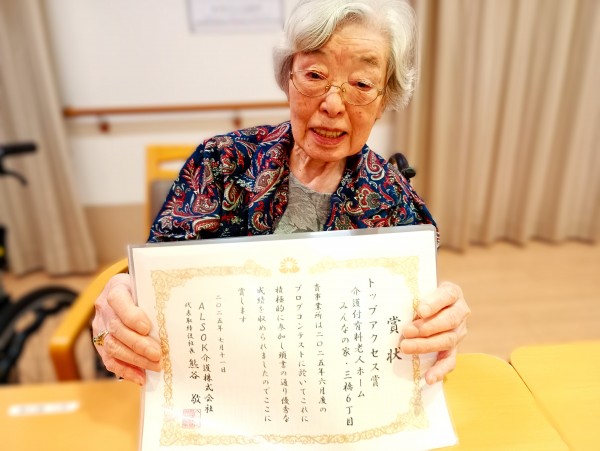 賞状
トップアクセス賞
介護付有料老人ホーム
みんなの家・三橋6丁目
貴事業所は二〇二五年六月度の
ブログコンテストに於いてこれに
積極的に参加し頭書の通り優秀な
成績を収められましたのでここに
賞します
二〇二五年七月十一日
ALSOK介護株式会社
代表取締役社長 熊谷 敬